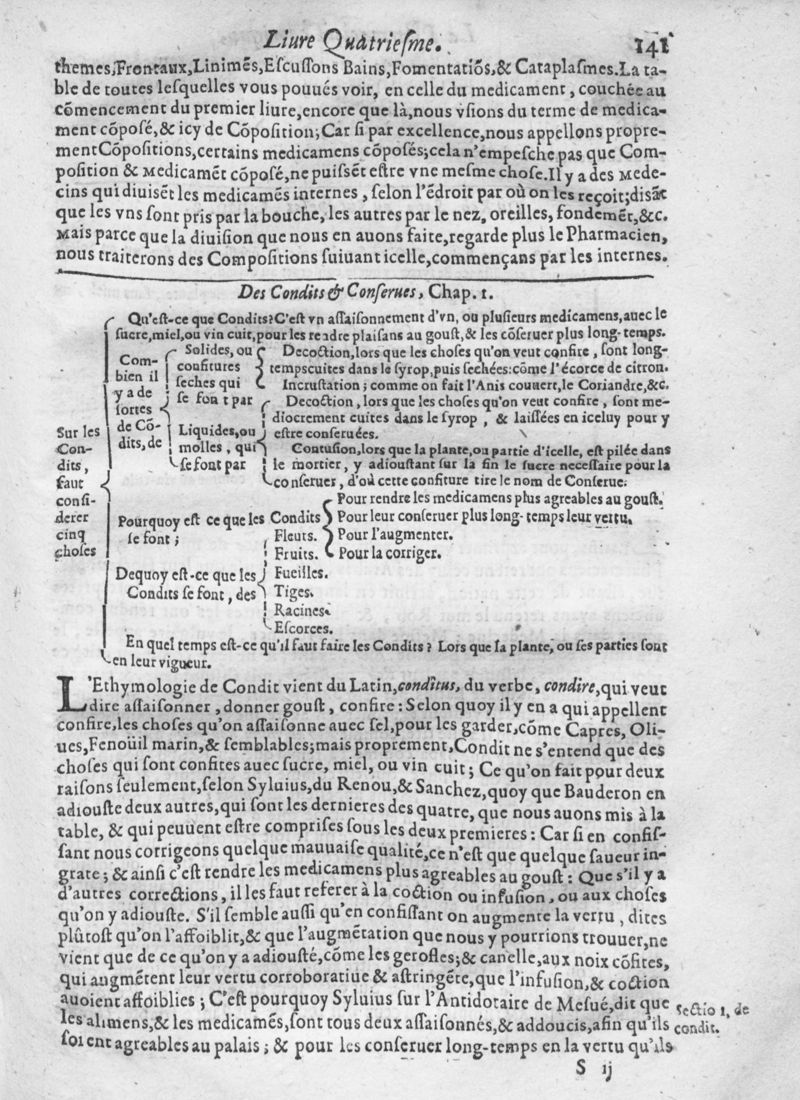 Liure Quatriesme. 141
themes,Frontaux,Linimẽs,Escussons Bains,Fomentatiõs,& Cataplasmes.La ta-
ble de toutes lesquelles vous pouués voir, en celle du medicament, couchée au
cõmencement du premier liure,encore que là,nous vsions du terme de medica-
ment cõposé,& icy de Cõposition;Car si par excellence,nous appellons propre-
ment Cõpositions,certains medicamens cõposés;cela n'empesche pas que Com-
position & Medicamẽt cõposé,ne puissẽt estre vne mesme chose.Il y a des Mede-
cins qui diuisẽt les medicamẽs internes, selon l'ẽdroit par où on les reçoit;disãt
que les vns sont pris par la bouche, les autres par le nez, oreilles, fondemẽt,&c.
Mais parce que la diuision que nous en auons faite,regarde plus le Pharmacien,
nous traiterons des Compositions suiuant icelle,commençans par les internes.
Des Condits & Conserues, Chap. 1.
Sur les
Con-
dits,
faut
consi-
derer
cinq
choses
Qu'est-ce que Condits?C'est vn assaisonnement d'vn, ou plusieurs medicamens,auec le
sucre,miel,ou vin cuit,pour les rendre plaisans au goust,& les cõseruer plus long-temps.
Com-
bien il
y a de
sortes
de Cõ-
dits,de
Solides, ou
confitures
seches qui
se font par
Decoction,lors que les choses qu'on veut confire, sont long-
tempscuites dans le syrop,puis sechées:cõme l'écorce de citron.
Incrustation; comme on fait l'Anis couuert,le Coriandre,&c.
Liquides,ou
molles, qui
se font par
Decoction, lors que les choses qu'on veut confire, sont me-
diocrement cuites dans le syrop, & laissées en iceluy pour y
estre conseruées.
Contusion,lors que la plante,ou partie d'icelle, est pilée dans
le mortier, y adioustant sur la fin le sucre necessaire pour la
conseruer, d'où cette confiture tire le nom de Conserue.
Pourquoy est ce que les Condits
se font;
Pour rendre les medicamens plus agreables au goust.
Pour leur conseruer plus long-temps leur vertu.
Pour l'augmenter.
Pour la corriger.
Dequoy est-ce que les
Condits se font, des
Fleurs.
Fruits.
Fueilles.
Tiges.
Racines.
Escorces.
En quel temps est-ce qu'il faut faire les Condits? Lors que la plante, ou ses parties sont
en leur vigueur.
L'Ethymologie de Condit vient du Latin,conditus, du verbe, condire,qui veut
dire assaisonner, donner goust, confire: Selon quoy il y en a qui appellent
confire,les choses qu'on assaisonne auec sel,pour les garder,cõme Capres, Oli-
ues,Fenoüil marin,& semblables;mais proprement,Condit ne s'entend que des
choses qui sont confites auec sucre, miel, ou vin cuit; Ce qu'on fait pour deux
raisons seulement,selon Syluius,du Renou,& Sanchez,quoy que Bauderon en
adiouste deux autres,qui sont les dernieres des quatre, que nous auons mis à la
table, & qui peuuent estre comprises sous les deux premieres: Car si en confis-
sant nous corrigeons quelque mauuaise qualité,ce n'est que quelque saueur in-
grate; & ainsi c'est rendre les medicamens plus agreables au goust: Que s'il y a
d'autres corrections, il les faut referer à la coction ou infusion, ou aux choses
qu'on y adiouste. S'il semble aussi qu'en confissant on augmente la vertu, dites
plûtost qu'on l'affoiblit,& que l'augmẽtation que nous y pourrions trouuer,ne
vient que de ce qu'on y a adiousté,cõme les gerofles;& canelle,aux noix cõfites,
qui augmẽtent leur vertu corroboratiue & astringẽte,que l'infusion,& coction
auoient affoiblies; C'est pourquoy Syluius sur l'Antidotaire de Mesué,dit que
les alimens,& les medicamẽs,sont tous deux assaisonnés,& addoucis,afin qu'ils
soient agreables au palais; & pour les conseruer long-temps en la vertu qu'ils
Sectio 1, de
condit.
S ij